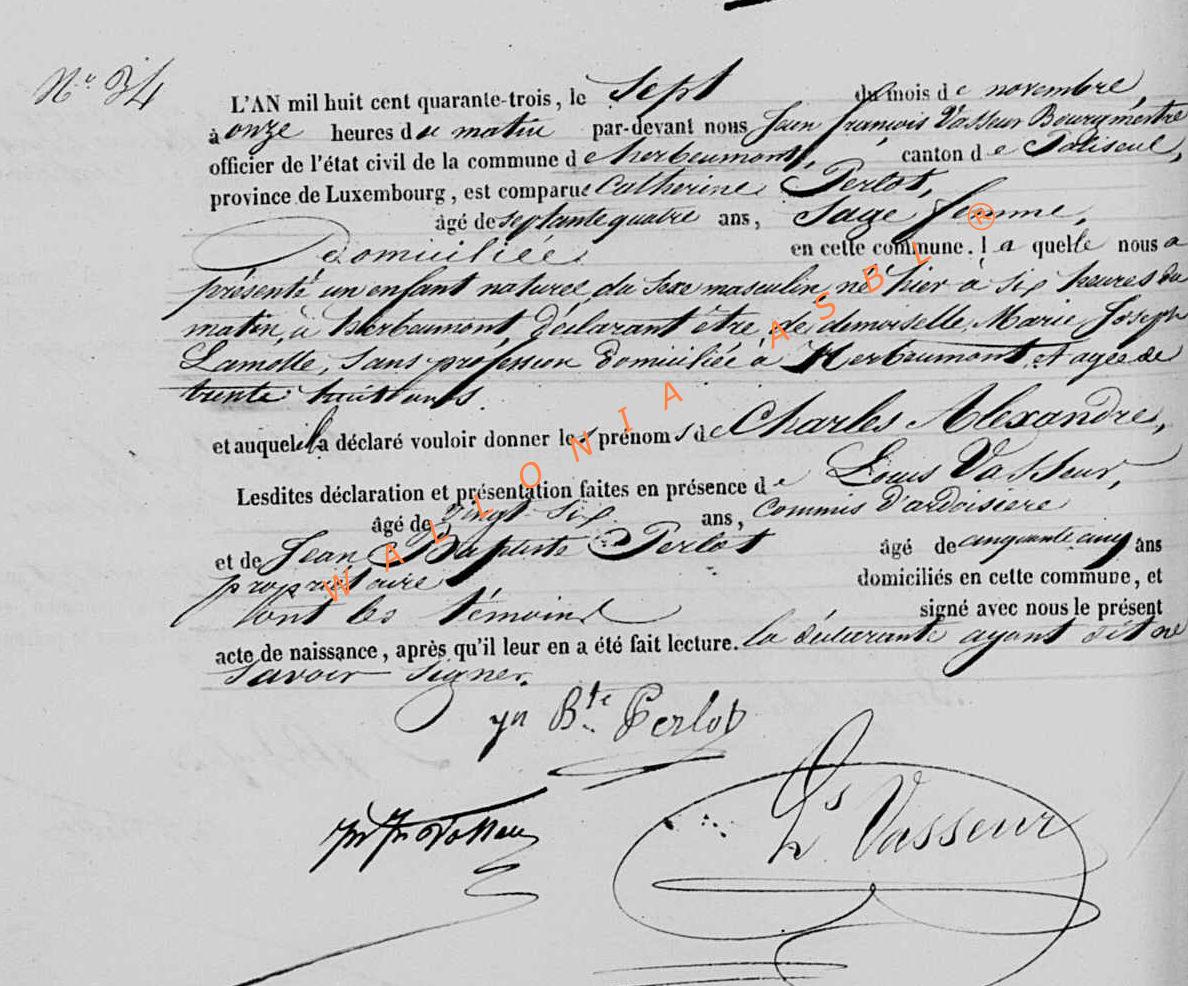 N.° 34
L'AN mil huit cent quarante-trois, le Sept du mois de novembre,
à onze heures du matin par-devant nous Jean françois Vasseur Bourgmestre
officier de l'état civil de la commune de herbeumont, canton de Paliseul,
province de Luxembourg, est comparue Catherine Perlot,
âgé de septante quatre ans, Sage femme,
Domiciliée en cette commune. laquelle nous a
présenté un enfant naturel du sexe masculin, né hier à six heures du
matin, à herbeumont, déclarant être de demoiselle Marie Joseph
Lamolle, sans profession domiciliée à Herbeumont, et agée de
trente huit ans.
et auquel la déclaré vouloir donner les prénoms de Charles Alexandre,
Lesdites déclaration et présentation faites en présence de Louis Vasseur,
âgé de vingt six ans, Commis d'ardoisière
et de Jean Baptiste Perlot âgé de cinquante cinq ans
propriétaire domiciliés en cette commune, et
sont les témoins signé avec nous le présent
acte de naissance, après qu'il leur en a été fait lecture. la déclarante ayant dit ne
savoir signer.
Jn Bte Perlot
Jn Fr Vasseur
Ls Vasseur
WALLONIA ASBL ®